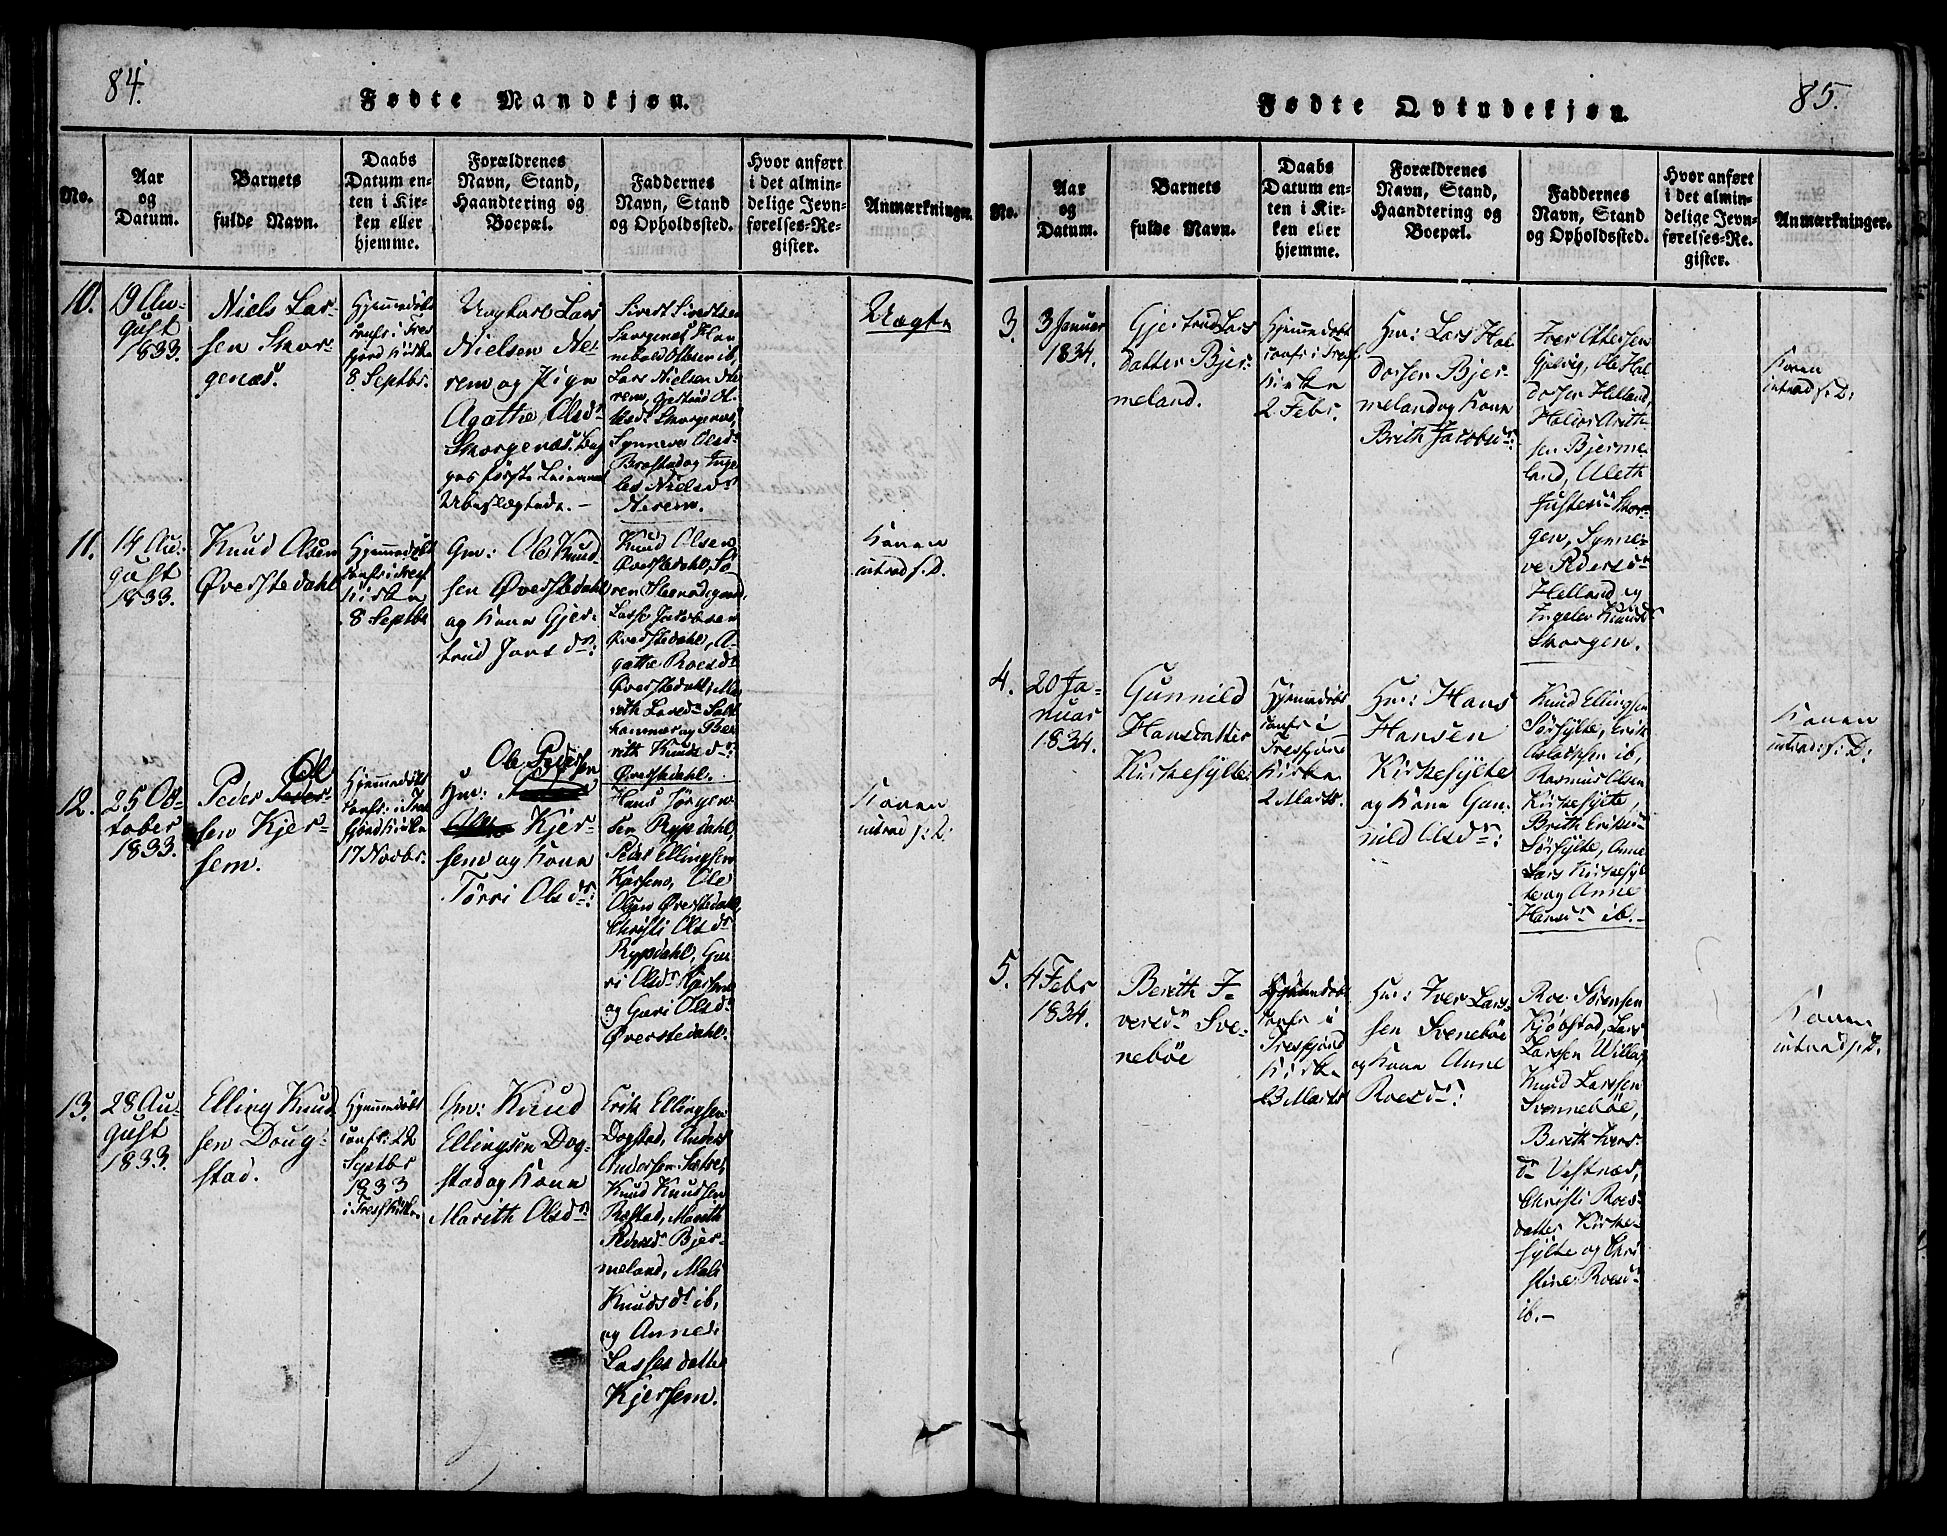 84.
Fødte Mandkjøn.
No.
Aar
og
Datum.
Barnets
fulde Navn.
Daabs
Datum en-
ten i Kir-
ken eller
hjemme.
Forældrenes
Navn, Stand,
Haandtering og
Boepæl.
Faddernes
Navn, Stand
og Opholdssted.
Hvor anført
i det almin-
delige Jevn-
førelses-Re-
gister.
Anmærkninger.
10.
19 Au-
gust
1833.
Niels Lar-
sen Skor-
genæs.
Hjemmedøbt
confr: i Tres-
fjord Kirke
8 Septbr.
Ungkarl Lars
Nielsen Ne-
rem og Pige
Agathe Olsdr
Skorgenæs. Beg-
ges første Leiermaal
Ubeslægtede. -
Sivert Sivertsen
Skorgenæs,
Ottesen ib,
Lars Nielsen Ne-
rem, Gjertrud Ol-
Skorgenæs,
Synneve Olsdr
Brastad og Inge-
leb Nielsdr
Nerem.
Uægte
11.
14 Au-
gust
1833.
Knud Olsen
Øverstedahl
Hjemmedøbt
confr: i Tresf
Kirke
8 Septbr
Gm: Ole Knud-
sen Øverstedahl
og Kone Gjer-
trud Jonsdr:
Knud Olsen
Øverstedahl, Sø-
ren
Lasse Jacobsen
Øverstedahl, A-
gathe Roesdr
Øverstedahl, Ma-
rith Larsdr
og Be-
rith Knudsdr:
Øverstedahl.
Konen
introd s. D.
12.
25 Oc-
tober
1833.
Ole
Peder Peder-
sen Kjer-
sem.
Hjemmedøbt
confr: i Tres-
fjord Kirke
17 Novbr.
Ole Pedersen
Gm:
Olsen Kjer-
sem og Kone
Tørri Olsdr:
Hans Jørgen-
sen Rypdahl,
Peder Ellingsen
Kjersem, Ole
Olsen Øverstedahl,
Christi Olsdr
Rypdahl, Gu-
ri Olsdr Kjersem
og Guri Olsdr
Øverstedahl.
Konen
introd s: D:
13.
28 Au-
gust
1833.
Elling Knud-
sen Doug-
stad.
Hjemmedøbt
confr: 22
Septbr
1833
i Tresf Kirke
Gm: Knud
Ellingsen Dog-
stad og Kone
Marith Olsdr
Erik Ellingsen
Dogstad, Anders
Andersen Sætre,
Knud Knudsen
Røstad, Marith
Pedersdr Bjer-
meland, Mali
Knudsdr ib,
og Anne
Lasses datter
Kjersem.
85.
Fødte Qvindekjøn.
No.
Aar
og
Datum.
Barnets
fulde Navn.
Daabs
Datum en-
ten i Kir-
ken eller
hjemme.
Forældrenes
Navn, Stand,
Haandtering og
Boepæl.
Faddernes
Navn, Stand
og Opholdssted.
Hvor anført
i det almin-
delige Jevn-
førelses-Re-
gister.
Anmærkninger.
3.
3 Januar
1834.
Gjertrud Lars
datter Bjer-
meland.
Hjemmedøbt
confr: i Tresf
Kirke
2 Febr.
Hm: Lars Hal-
dorsen Bjer-
meland og Kone
Brith Jacobsdr:
Iver Ottersen
Gjelvig, Ole Hal-
dorsen Helland,
Haldor
sen Bjerme-
land, Aleth
Skor-
gen, Synne-
ve Pedersdr
Helland og
Ingeleb Knudsdr
Skorgen.
Konen
introd s: D:
4.
20 Ja-
nuar
1834.
Gunnild
Hansdatter
Kirkesylte.
Hjemmedøbt
confr i
Tresfjord
Kirke
2 Marts.
Hm: Hans
Hansen
Kirkesylte
og Kone Gun-
nild Olsdr:
Knud Ellingsen
Sørsylte, Erik
Aslaksen ib,
Rasmus Olsen
Kirkesylte,
Brith Eriksdr
Sørsylte, Anne
Lars Kirkesyl-
te og Anne
Hansdr ib. -
Konen
introd: s: D:
5.
4 Febr
1834.
Berith I-
versdr Sve-
nebøe
Hjemmedøbt
confr i
Tresfjord
Kirke
23 Marts
Hm: Iver Lar-
sen Svenebøe
og Kone Anne
Roesdr:
Roe Sørensen
Kjøbstad, Lars
Larssen Willa,
Knud Larssen
Svennebøe,
Berith Ivers-
dr Vestnæs,
Christi Roes-
datter Kirke-
sylte og Chri-
stine Roesdr
ib. -
Konen
introd s: D.